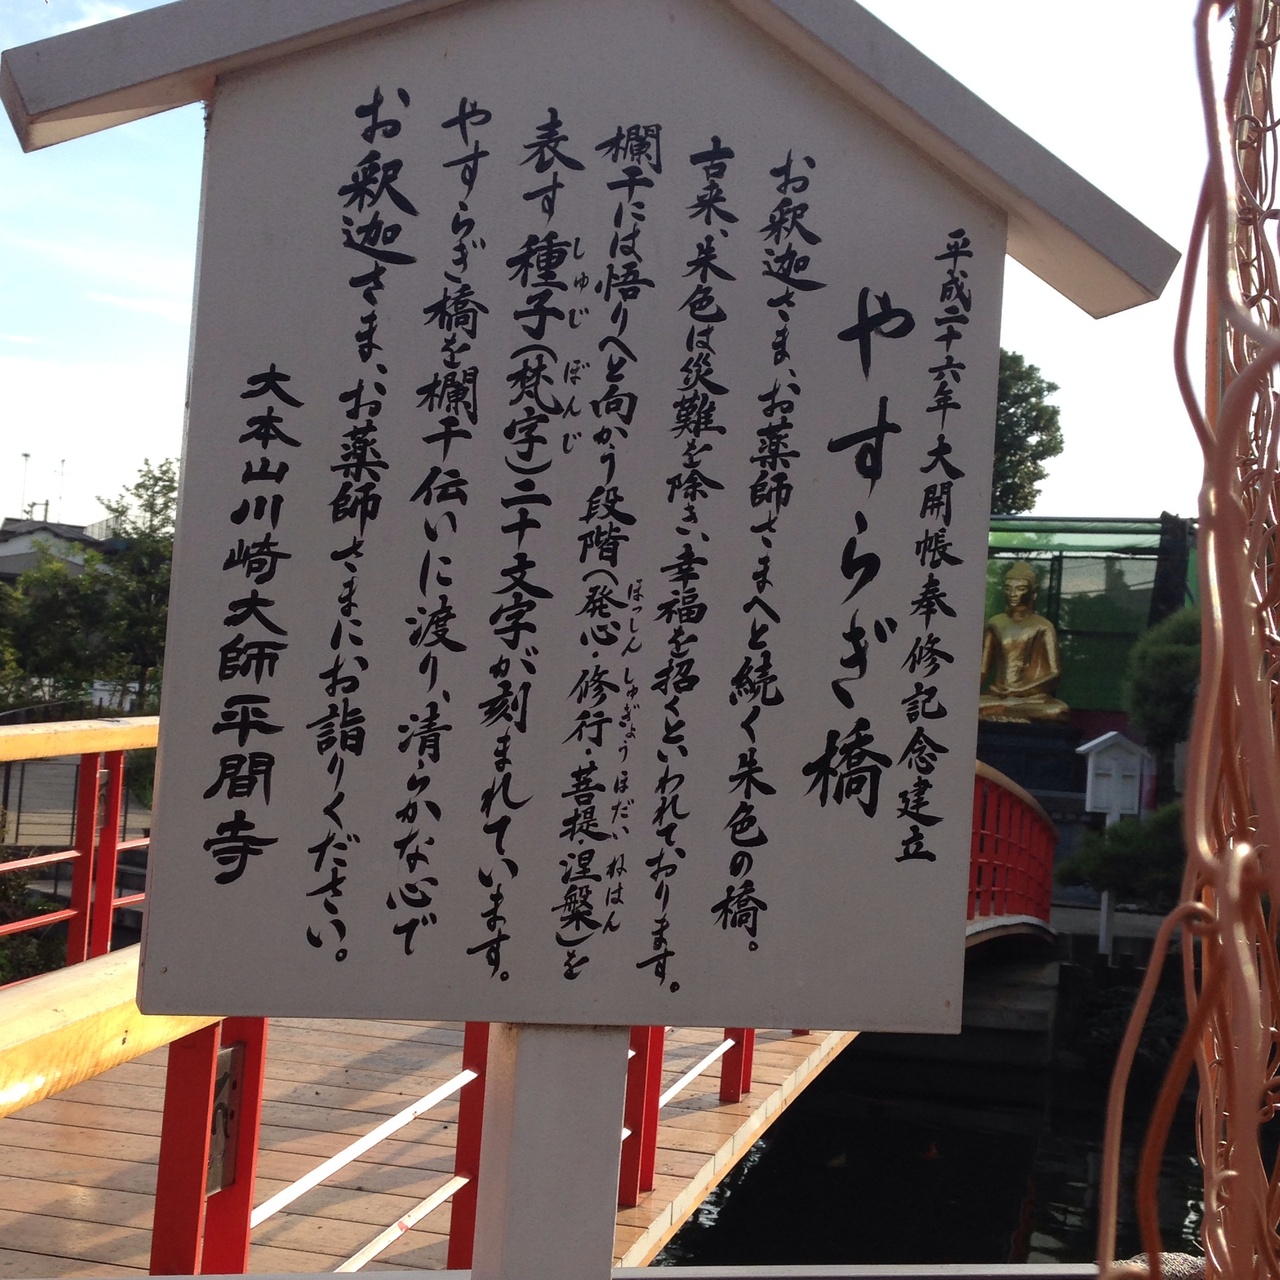 平成二十六年大開帳奉修記念建立
やすらぎ橋
お釈迦さま、お薬師さまへと続く朱色の橋。
古来、朱色は災難を除き、幸福を招くといわれております。
欄干には悟りへと向かう段階(発心・修行・菩提・涅槃)を
ほっしん しゅぎょう ぼだい ねはん
表す種子(梵字)二十文字が刻まれています。
しゅじ ぼんじ
やすらぎ橋を欄干伝いに渡り、清らかな心で
お釈迦さま、お薬師さまにお詣りください。
大本山川崎大師平間寺